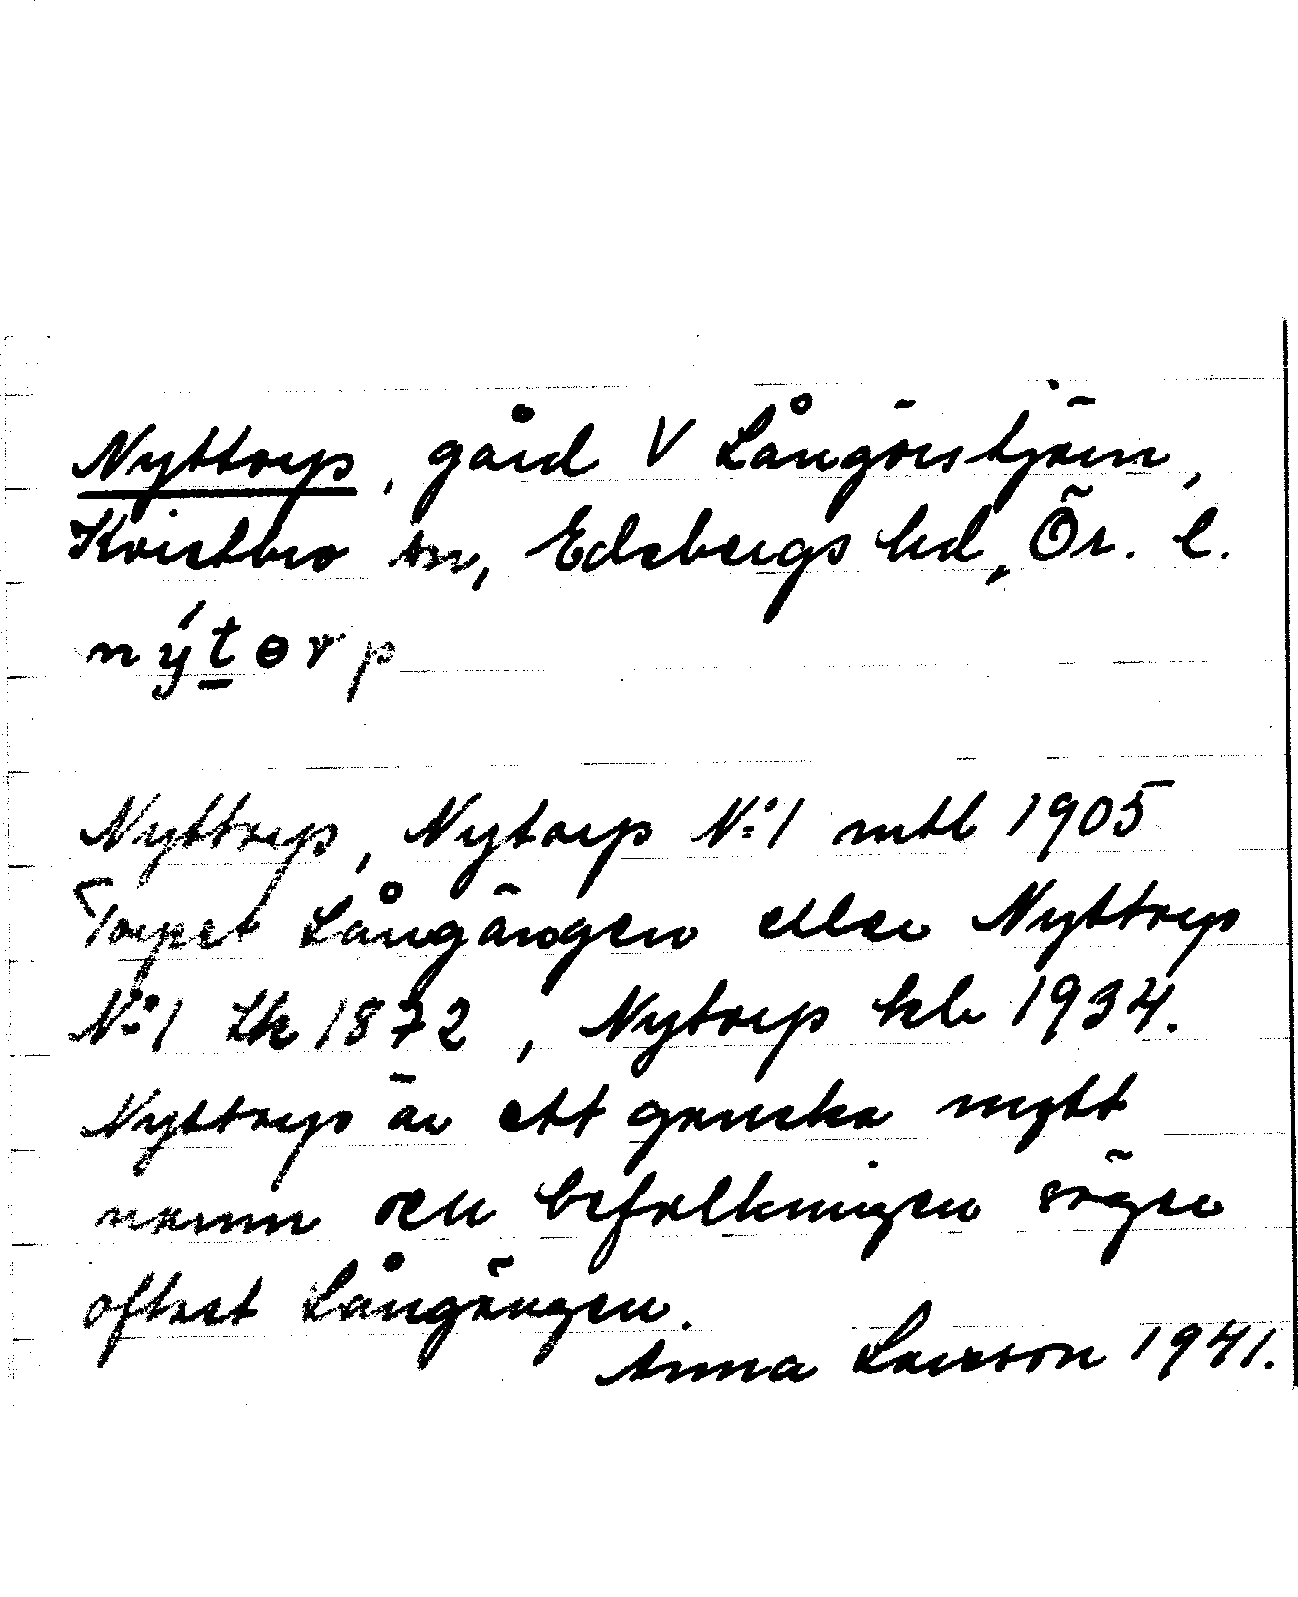 Nyttorp, gård V Långörstjärn,
Kvistbro sn, Edsbergs hd, Ör. l.
nýtɵrp
Nyttorp, Nytorp No:1 mtl 1905
Torpet Långängen eller Nyttorp
No:1 Lk 1872, Nytorp kb 1934.
Nyttorp är ett ganska nytt
namn och befolkningen säger
oftast Långängen.
Anna Larsson 1941.